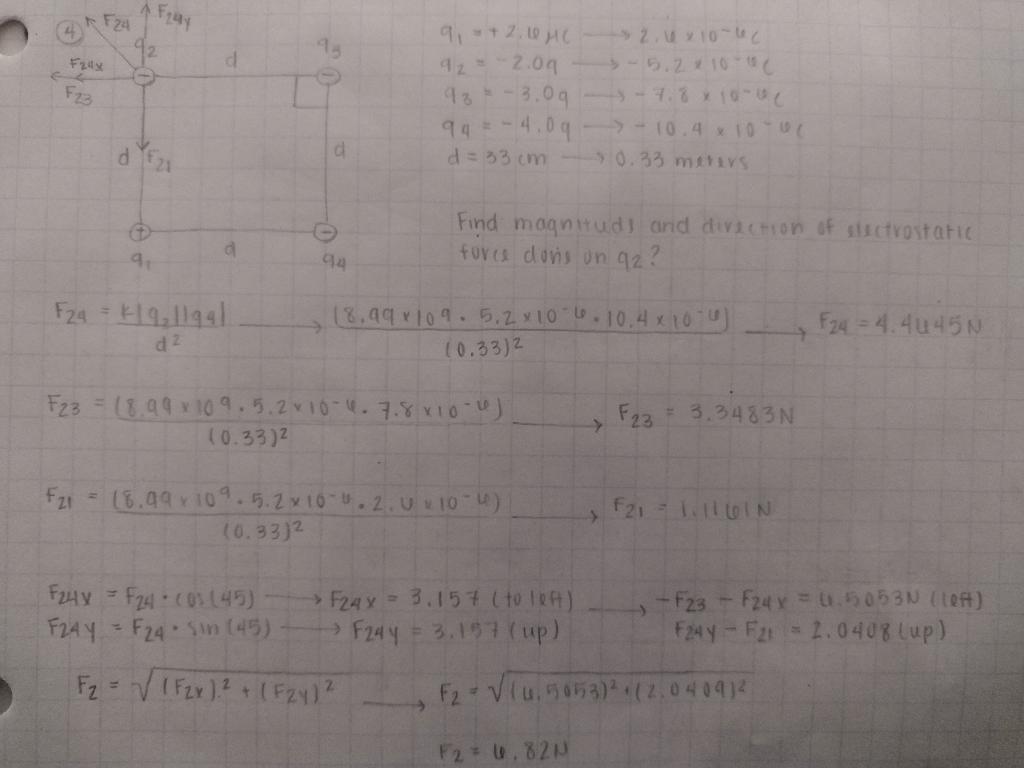 ④ F₂₄ F₂₄y
q₂ d q₃
F₂₄x
F₂₃
d F₂₁ d
q₁ d q₄
q₁ = +2.6 μC → 2.6 x 10⁻⁶ C
q₂ = -2.0q → -5.2 x 10⁻⁶ C
q₃ = -3.0q → -7.8 x 10⁻⁶ C
q₄ = -4.0q → -10.4 x 10⁻⁶ C
d = 33 cm → 0.33 meters
Find magnitude and direction of electrostatic
force done on q₂?
F₂₄ = k|q₂||q₄| / d² → (8.99 x 10⁹ · 5.2 x 10⁻⁶ · 10.4 x 10⁻⁶) / (0.33)² → F₂₄ = 4.4645 N
F₂₃ = (8.99 x 10⁹ · 5.2 x 10⁻⁶ · 7.8 x 10⁻⁶) / (0.33)² → F₂₃ = 3.3483 N
F₂₁ = (8.99 x 10⁹ · 5.2 x 10⁻⁶ · 2.6 x 10⁻⁶) / (0.33)² → F₂₁ = 1.1161 N
F₂₄x = F₂₄ · cos(45) → F₂₄x = 3.157 (to left) → -F₂₃ - F₂₄x = 6.5053 N (left)
F₂₄y = F₂₄ · sin(45) → F₂₄y = 3.157 (up) F₂₄y - F₂₁ = 2.0408 (up)
F₂ = √(F₂x)² + (F₂y)² → F₂ = √(6.5053)² + (2.0409)²
F₂ = 6.82 N